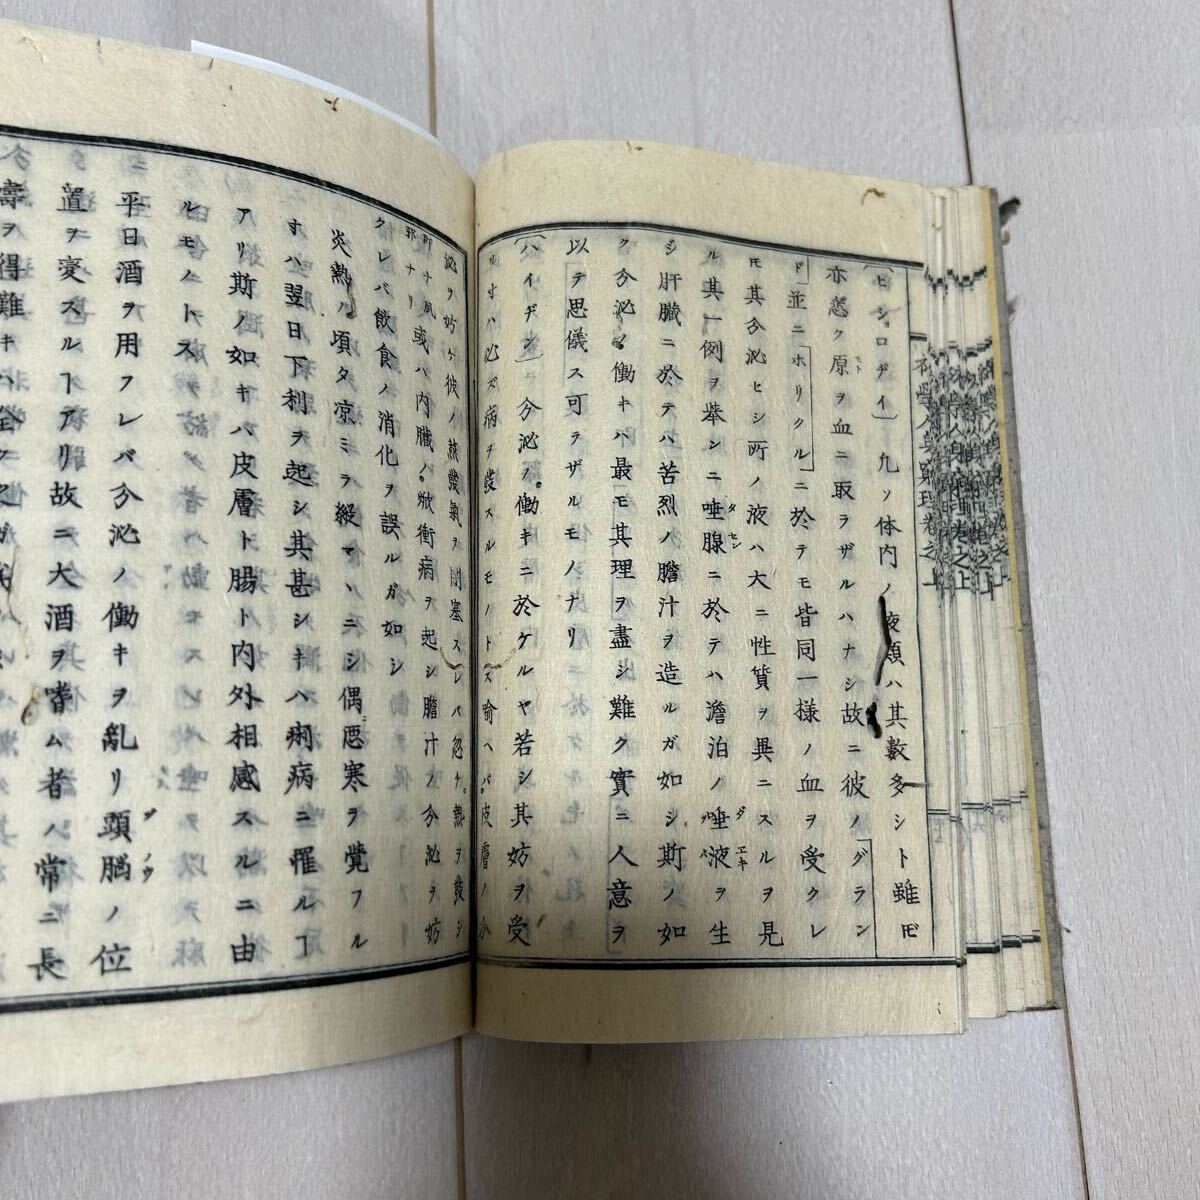 〔ヒシロヂイ〕九ソ体内ノ液類ハ其數多シト雖𪜈
亦悉ク原ヲ血ニ取ラザルハナシ故ニ彼ノ〔グラン
ド〕並ニ〔ホリクル〕ニ於テモ皆同一様ノ血ヲ受クレ
𪜈其分泌セシ所ノ液ハ大ニ性質ヲ異ニスルヲ見
ル其一例ヲ擧ンニ唾腺ニ於テハ澹泊ノ唾液ヲ生
シ肝臓ニ於テハ苦烈ノ膽汁ヲ造ルガ如シ斯ノ如
ク分泌ノ働キハ最モ其理ヲ盡シ難ク實ニ人意ヲ
以テ思儀ス可ラザルモノナリ
〔ハイヂン〕分泌ノ働キニ於ケルヤ若シ其妨ヲ受
ルオハ必ズ病ヲ發スルモノトス喩ヘバ皮膚ノ分
泌ヲ妨ケ彼ノ蒸發氣ヲ閉塞スレバ忽ケ熱ヲ發シ
或ハ内臓ノ焮衝病ヲ起シ膽汁ノ分泌ヲ妨
クレバ飲食ノ消化ヲ誤ルガ如シ
炎熱ノ頃夕凉ミヲ縦マヽニシ偶悪寒ヲ覚フル
オハ翌日下利ヲ起シ其甚シキハ痢病ニ罹ルヿ
アリ斯ノ如キハ皮層ト腸ト内外相感スルニ由
ルモノトス
平日酒ヲ用フレバ分泌ノ働キヲ乱リ頭脳ノ位
置ヲ変スルヿアリ故ニ大酒ヲ嗜ム者ハ常ニ長
壽ヲ得難キハ全ク之ガ